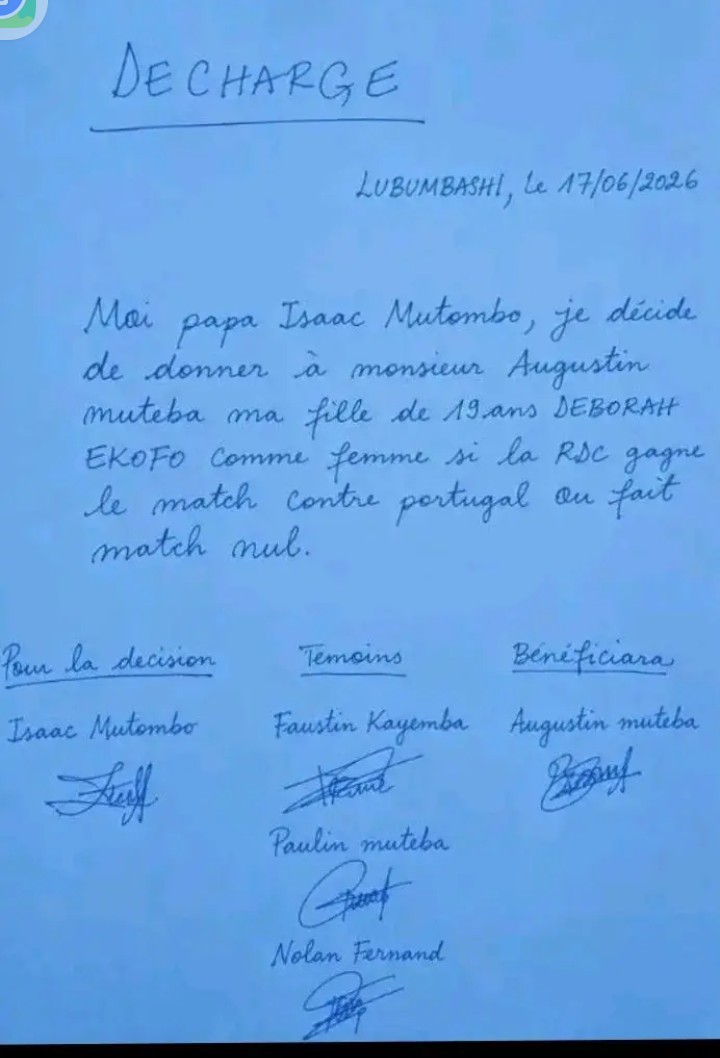 DECHARGE
LUBUMBASHI, le 17/06/2026
Moi papa Isaac Mutombo, je décide
de donner à monsieur Augustin
muteba ma fille de 19 ans DEBORAH
EKOFO comme femme si la RDC gagne
le match contre portugal ou fait
match nul.
Pour la decision Temoins Bénéficiara
Isaac Mutombo Faustin Kayemba Augustin muteba
Paulin muteba
Nolan Fernand